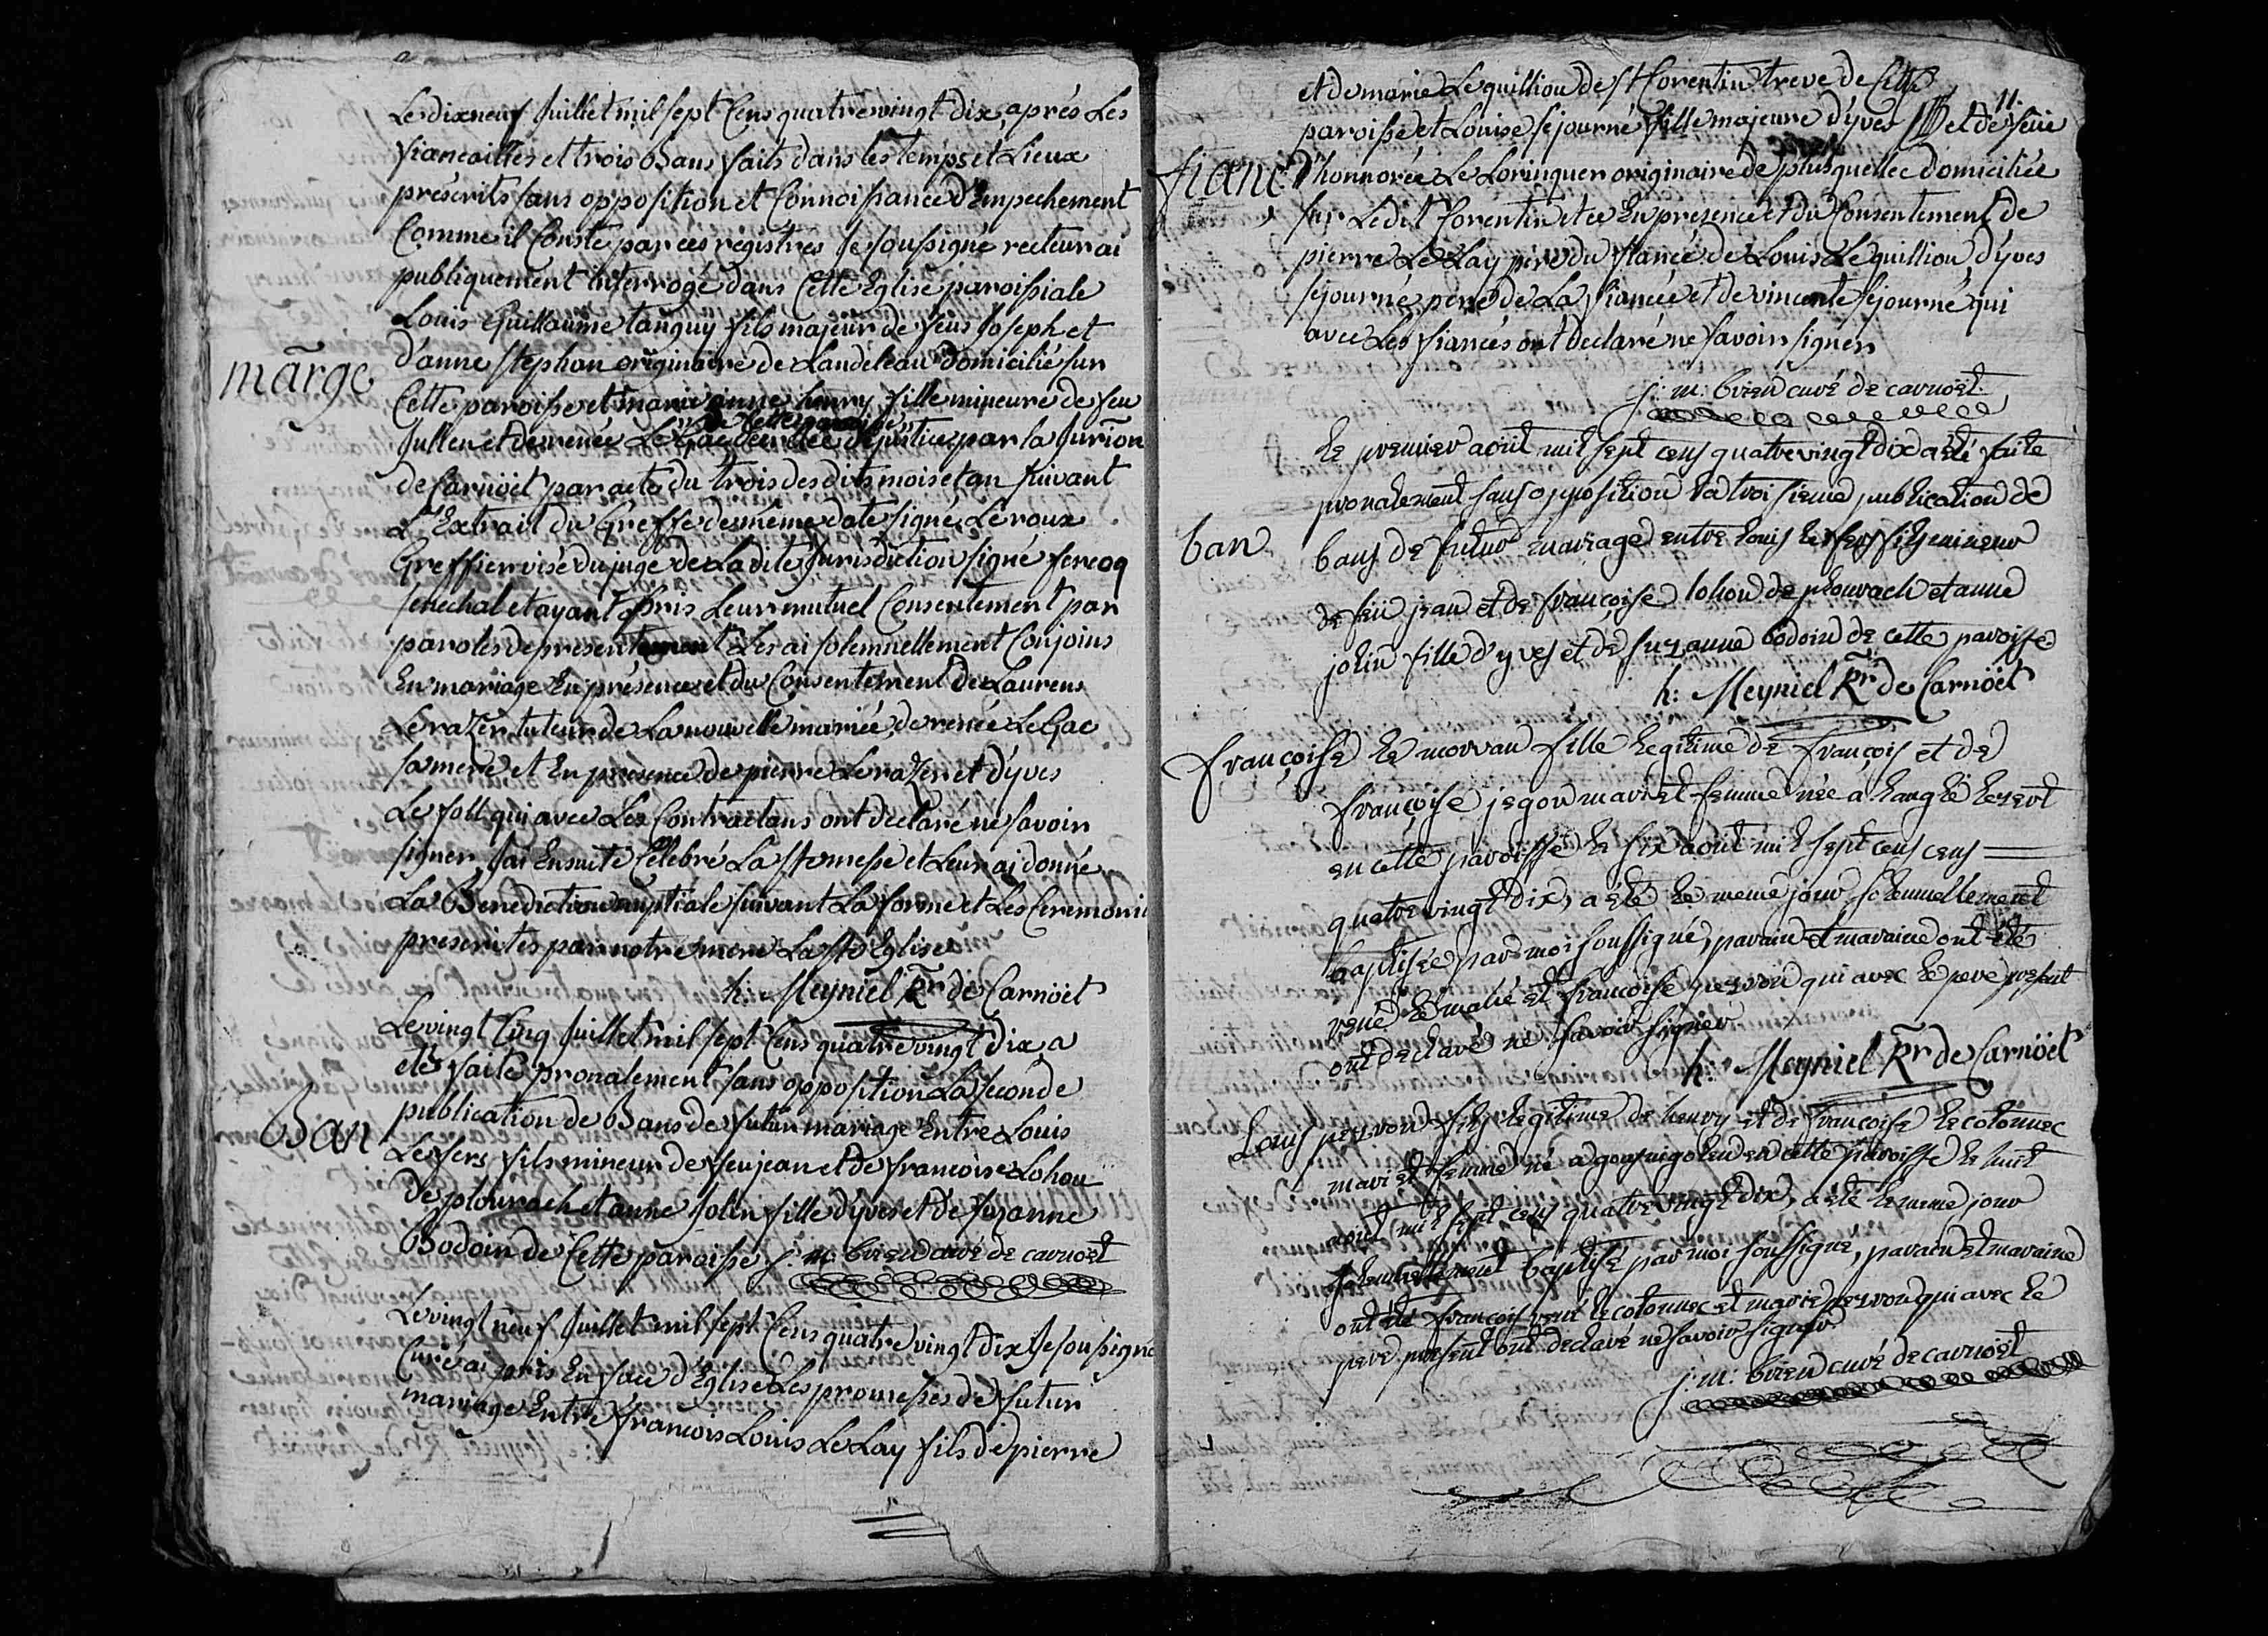 Le dix neuf Juillet mil sept Cens quatre vingt dix, après Les
fiancailles et trois Bans faits dans les temps et Lieux
préscrits sans opposition et Connoissance d'Empechement
Comme il Conste par ces registres Je soussigné recteur ai
publiquement interrogé dans Cette Eglise paroissiale
Louis Guillaume tanguy fils majeur de feus Joseph et
d'anne stephan originaire de Landeleau domicilié sur
marge
Cette paroisse et marie anne henry fille mineure de feu
de cette paroisse
Jullien et de renée Le Gac de justice par la Jurion
de Carnöet par acte du trois des dits mois et an suivant
L'Extrait du Greffe de même date signé Leroux
Greffier visé du juge de Ladite Jurisdiction signé fercoq
senechal et ayant pris Leur mutuel Consentement par
paroles de present Les ai solemnellement Conjoins
En mariage En présence et du Consentement de Laurens
Lerazer tuteur de La nouvelle mariée, de renée Le Gac
sa mere et En presence de pierre Lerazer et d'yves
Le foll qui avec Les Contractans ont déclaré ne savoir
signer, J'ai Ensuite Célebré La ste messe et Leur ai donné
La Bénédiction nuptiale suivant La forme et Les Ceremonies
prescrites par notre mere La ste Eglise
h: Meyniel Rr de Carnöet
Le vingt Cinq Juillet mil sept Cens quatre vingt dix a
eté faite pronalement sans opposition La seconde
publication de Bans de futur mariage Entre Louis
Ban
Le fers fils mineur de feu jean et de francoise Lohou
de plourach et anne Jolin fille d'yves et de suzanne
Bodoin de Cette paroisse j: m: brien curé de carnoet
Le vingt neuf Juillet mil sept Cens quatre vingt dix Je soussigné
Curé ai pris En face d'Eglise Les promesses de futur
mariage Entre francois Louis Le Lay fils de pierre
11.
et de marie Le quilliou de st Corentin treve de Cette
paroisse et Louise sejourné fille majeure d'yves et de feüe
fianc
d'honnorée Le Lorinquer originaire de plusquellec domiciliée
sur Ledit Corentin et ce En presence et du Consentement de
pierre Le Lay pere du fiancé de Louis Le quilliou d'yves
sejourné pere de La fiancée et de vincente sejourné qui
avec Les fiancés ont declaré ne savoir signer
j: m: brien curé de carnoet
le premier aout mil sept cens quatre vingt dix a été faite
pronalement sans opposition la troisieme publication de
ban
bans de futur mariage entre louis le fers fils mineur
de feu jean et de françoise lohou de plourach et anne
jolin fille d'yves et de suzanne bodoin de cette paroisse
h: Meyniel Rr de Carnöet
françoise le morvan fille legitime de françois et de
françoise jegou mari et femme née a
en cette paroisse le six aout mil sept cens cens
quatre vingt dix, a été le meme jour solemnellement
baptisée par moi soussigné, parain et maraine ont été
rené le mahé et francoise perrou qui avec le pere present
ont declaré ne savoir signer
h: Meyniel Rr de Carnöet
Louis perrou fils legitime de henry et de françoise le cotonnec
mari et femme né a en cette paroisse le huit
aout mil sept cens quatre vingt dix, a été le meme jour
solemnellement baptisé par moi soussigné, parain et maraine
ont été françois rené le cotonnec et marie perrou qui avec le
pere present ont declaré ne savoir signer
j: m: brien curé de carnoet